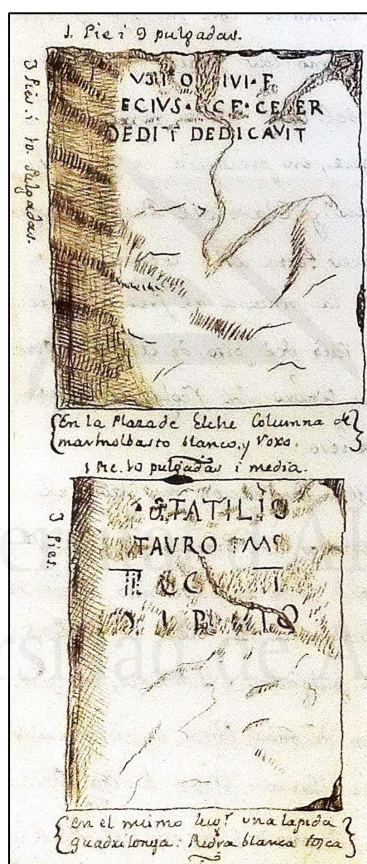 1. Pie i 9 pulgadas.
3 Pies. i 10. Pulgadas.
IVI · F
ECIVS · CF · CELER
DEDIT DEDICAVIT
En la Plaza de Elche Columna de
marmol basto blanco, y Roxo.
1 Pie. 10 pulgadas i media.
3 Pies.
· STATILIO
TAVRO · IMP
En el mismo lugr. una lapida
quadrilonga: Piedra blanca tosca